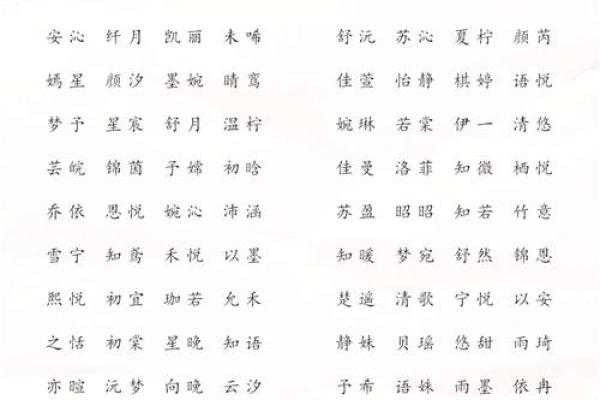 安沁 纤月 凯丽 未唏 舒沅 苏沁 夏柠 颜芮
嫣星 颜汐 墨婉 晴鸾 佳萱 怡静 棋婷 语悦
梦予 星宸 舒月 温柠 婉琳 若棠 伊一 清悠
芸皖 锦茵 予嫦 初晗 佳曼 洛菲 知微 栖悦
乔依 恩悦 婉沁 沛涵 苏盈 昭昭 知若 竹意
雪宁 知鸢 禾悦 以墨 知暖 梦宛 舒然 锦恩
熙悦 初宜 珈若 允禾 楚遥 清歌 宁悦 以安
之恬 初棠 星晚 知语 静姝 贝瑶 悠甜 雨琦
亦暄 沅梦 向晚 云汐 予希 语姝 雨墨 依冉